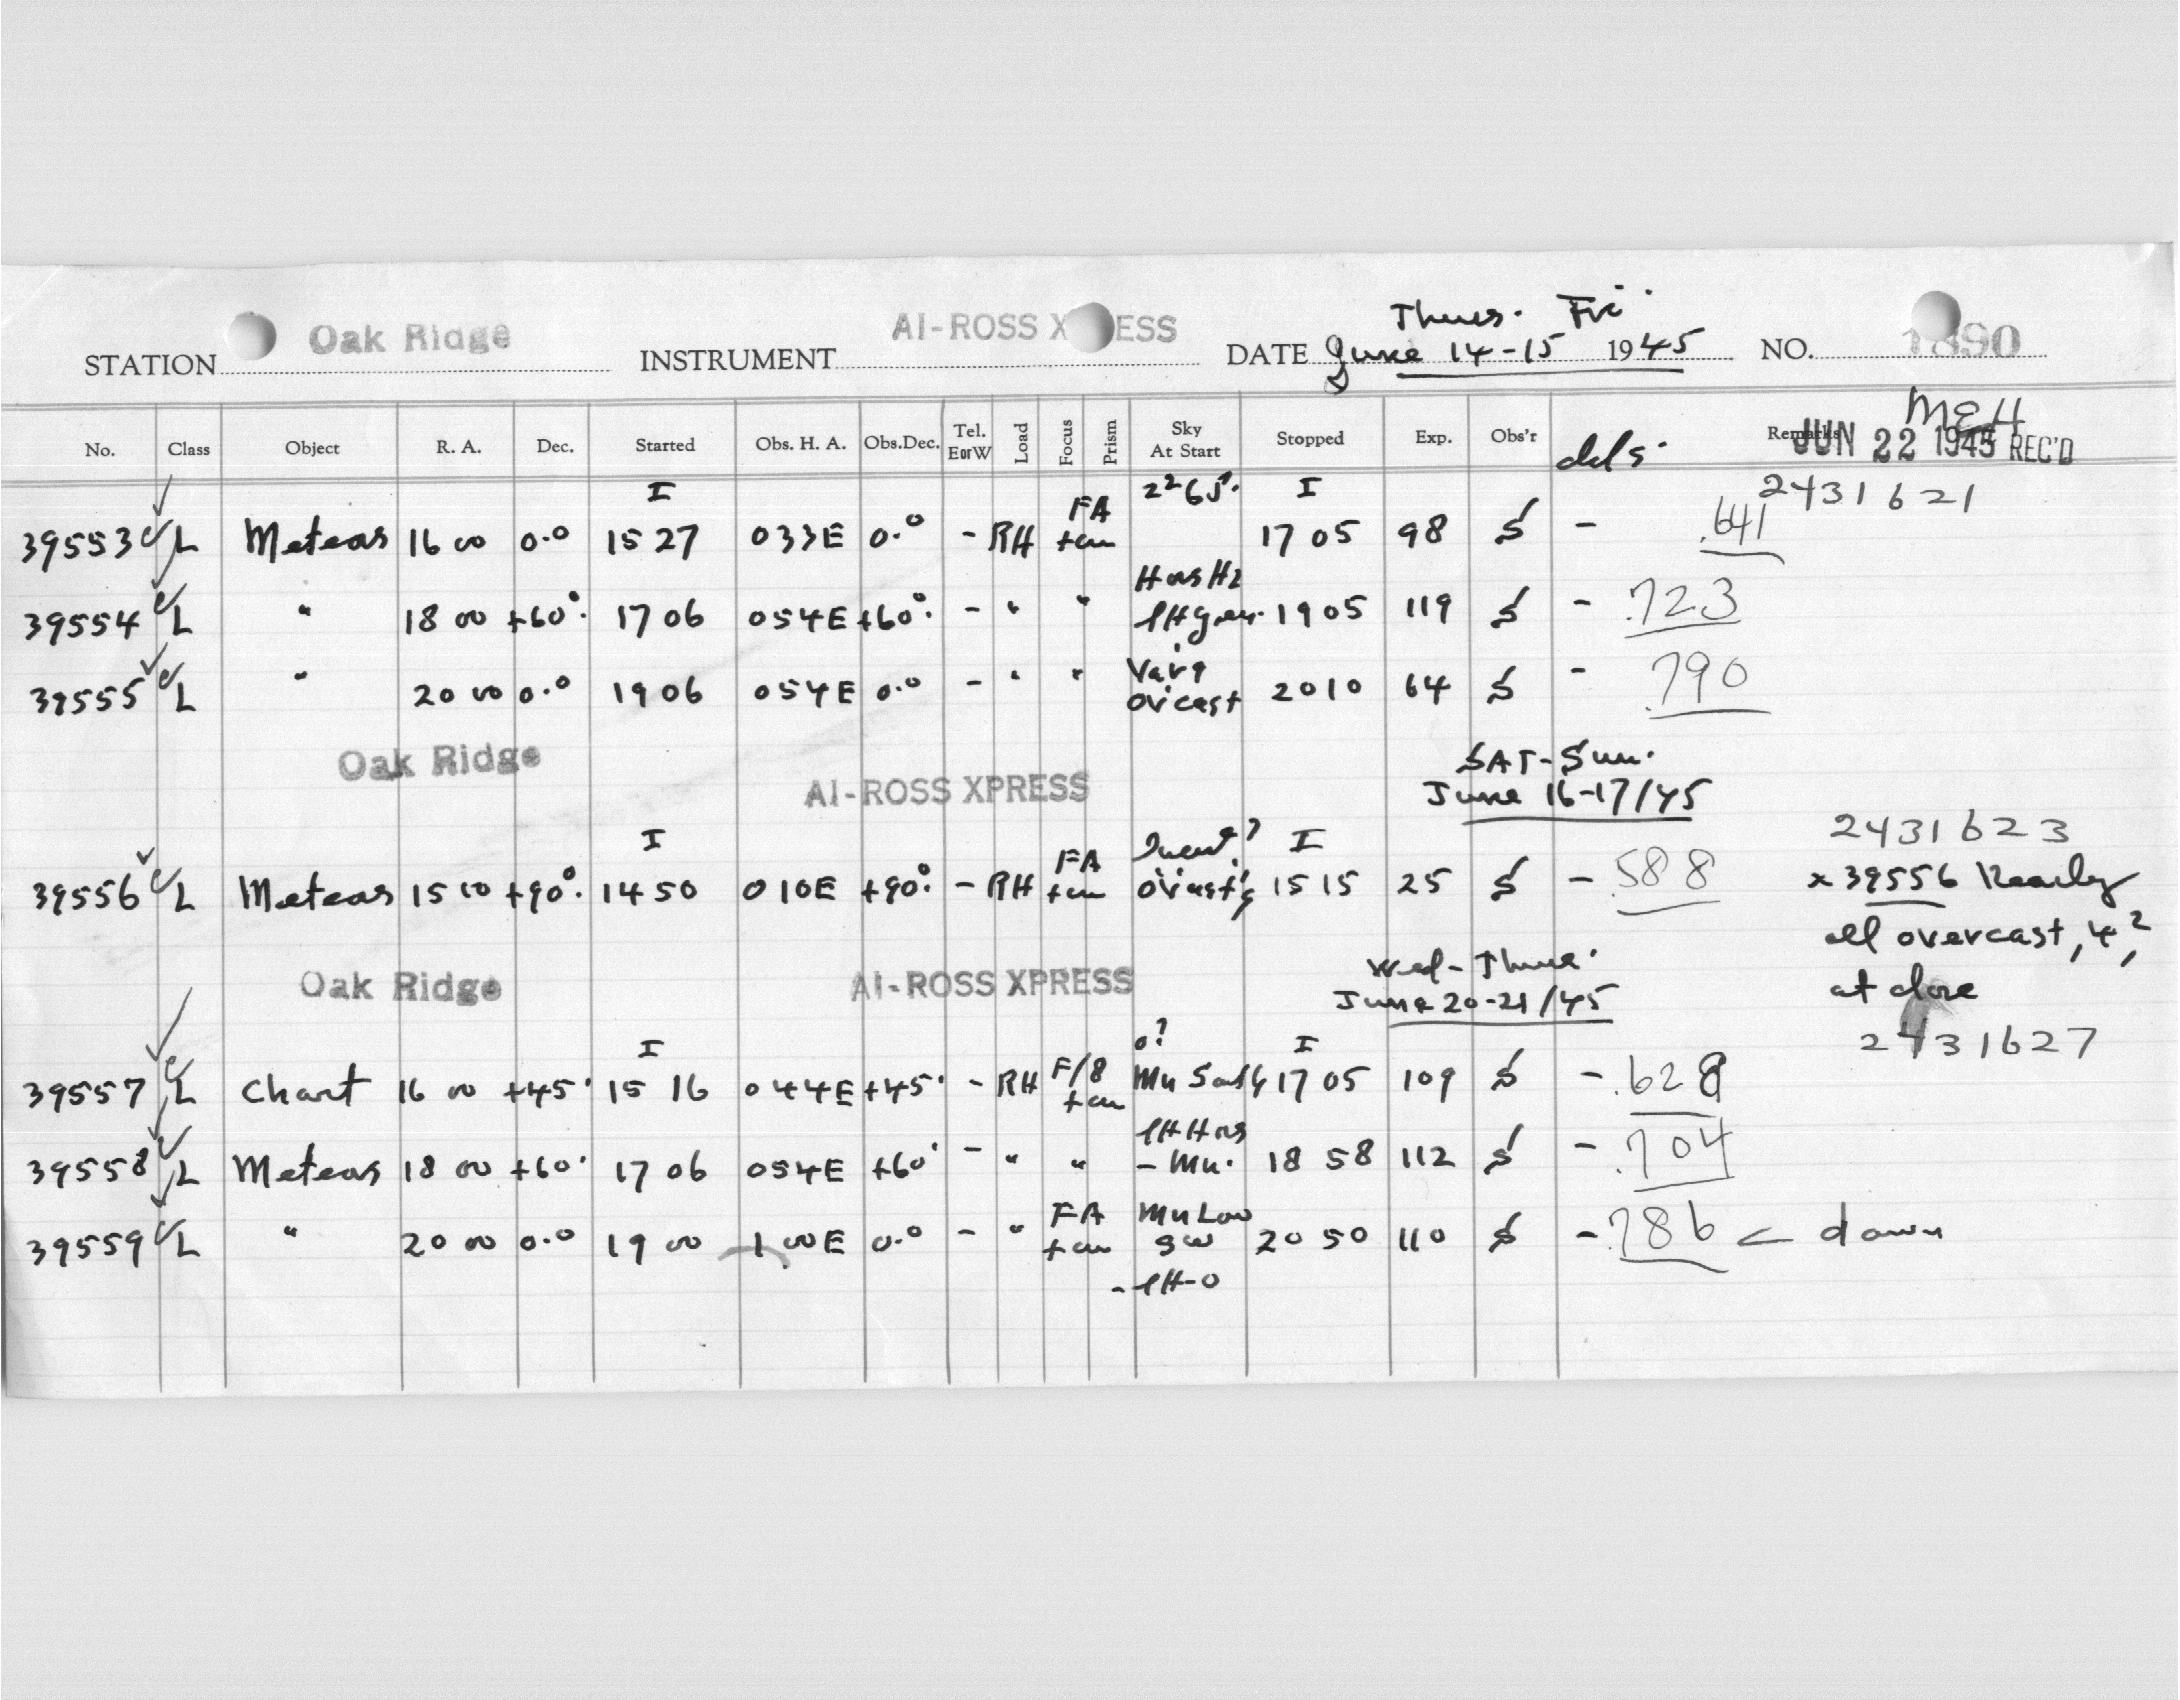 Thurs. Fri.
STATION Oak Ridge INSTRUMENT AI-ROSS X ESS DATE June 14-15 1945 NO. 1890
MEH
No. Class Object R. A. Dec. Started Obs. H. A. Obs.Dec. Tel. E or W Load Focus Prism Sky At Start Stopped Exp. Obs'r dds. Remarks JUN 22 1945 REC'D
I I 2431621
39553 L Meteors 16 00 0.° 15 27 033E 0.° - RH FA + cm 17 05 98 S - .641
39554 L " 18 00 +60° 17 06 054E +60° - " " 19 05 119 S - .723
39555 L " 20 00 0.° 19 06 054E 0.° - " " Var'g Ov'cast 20 10 64 S - .790
Oak Ridge AI-ROSS XPRESS SAT-Sun. June 16-17/45
I I 2431623
39556 L Meteors 15 00 +90° 14 50 010E +90° - RH FA + cm Ov'cast'g 15 15 25 S - .588 x 39556 Nearly
all overcast, 4²,
at close
Oak Ridge AI-ROSS XPRESS Wed-Thur. June 20-21/45
I 0? I 2431627
39557 L Chart 16 00 +45° 15 16 044E +45° - RH F/8 + cm 17 05 109 S - .628
39558 L Meteors 18 00 +60° 17 06 054E +60° - " " - Mn. 18 58 112 S - .704
39559 L " 20 00 0.° 19 00 1 00E 0.° - " FA + cm Mn Low SW 20 50 110 S - .786 < dawn
- lH-0